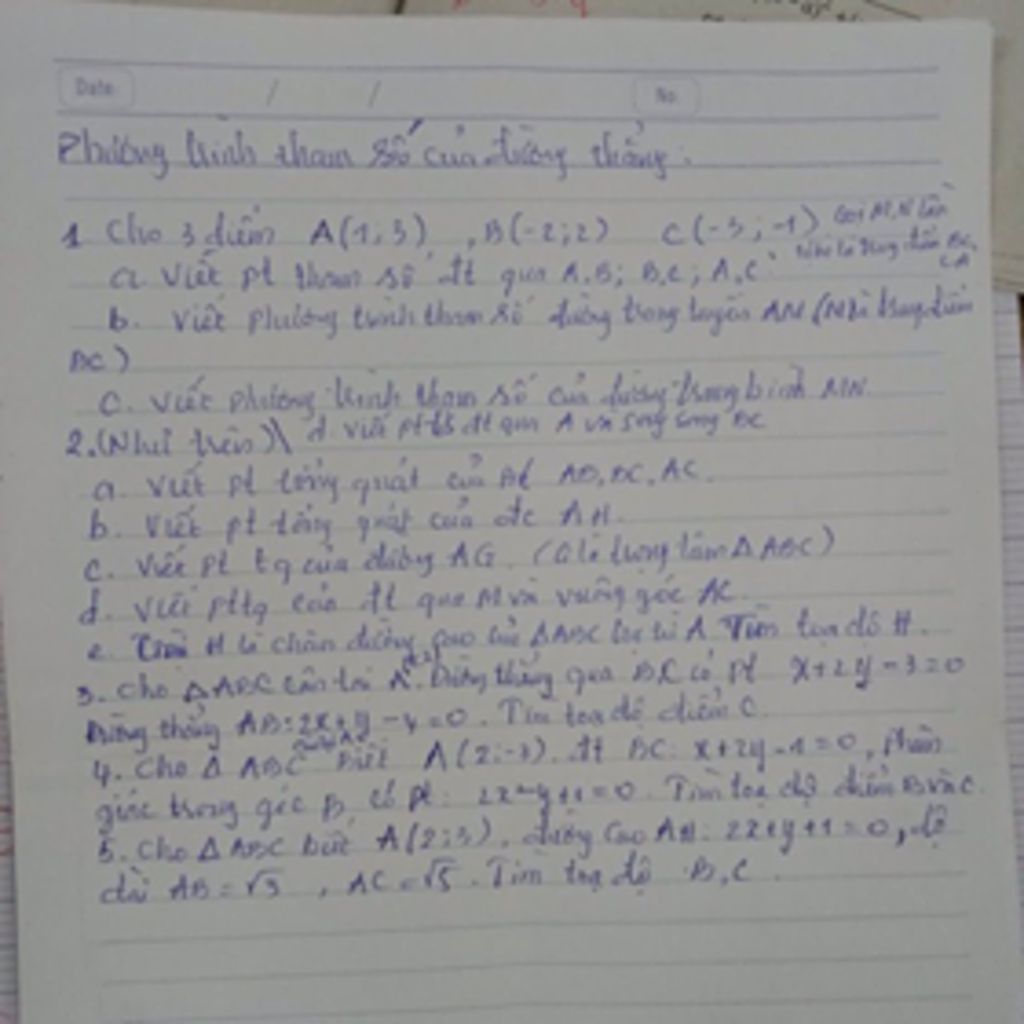 Date / / No.
Phương trình tham số của đường thẳng.
1 Cho 3 điểm A(1;3) , B(-2;2) C(-3;-1) Gọi M, N lần
lượt là trung điểm BC, CA
a. Viết pt tham số đt qua A,B; B,C; A,C
b. Viết phương trình tham số đường trung tuyến AN (N là trung điểm
BC)
c. Viết phương trình tham số của đường trung bình MN
2. (Như trên) \ d. Viết ptts đt qua A và song song BC
a. Viết pt tổng quát của AB, BC, AC.
b. Viết pt tổng quát của đc AH.
c. Viết pt tq của đường AG. (G là trọng tâm Δ ABC)
d. Viết pttq của đt qua M và vuông góc AC.
e. H là chân đường cao của ΔABC hạ từ A. Tìm toạ độ H.
3. Cho Δ ABC cân tại A. Đường thẳng qua BC có pt x+2y-3=0
Đường thẳng AB: 2x+y-4=0. Tìm toạ độ điểm C.
4. Cho Δ ABC biết A(2;-3). đt BC: x+2y-1=0, phân
giác trong góc B có pt: 2x-y+1=0. Tìm toạ độ điểm B và C.
5. Cho Δ ABC biết A(2;3), đường cao AH: 2x+y+1=0, độ
dài AB=√3 , AC=√5. Tìm toạ độ B,C.